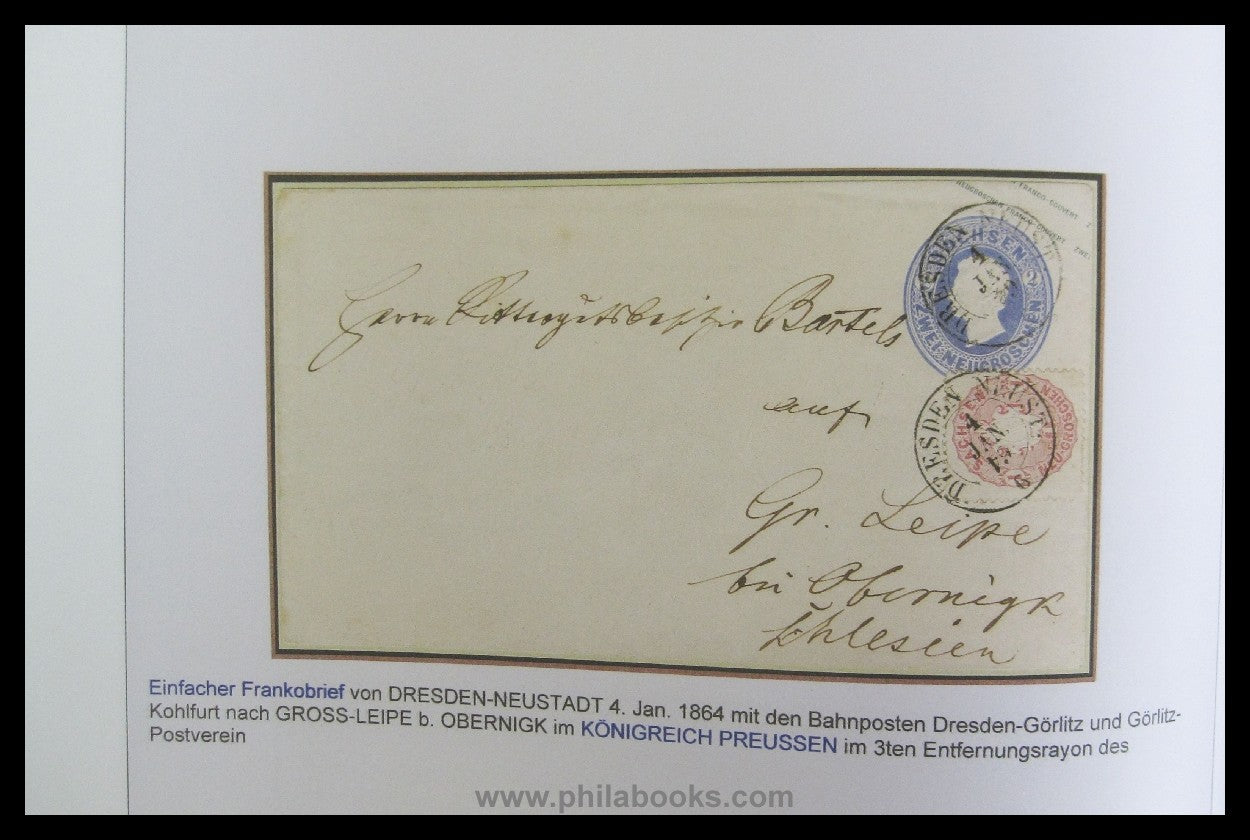 NEUGROSCHEN FRANCO-COUVERT
SACHSEN 2
ZWEI NEUGROSCHEN
DRESDEN NEUST.
4
JAN.
Herrn Rittergutsbesitzer Bartels
auf
SACHSEN
NEUGROSCHEN
DRESDEN NEUST.
4
JAN.
Gr. Leipe
bei Obernigk
Schlesien
Einfacher Frankobrief von DRESDEN-NEUSTADT 4. Jan. 1864 mit den Bahnposten Dresden-Görlitz und Görlitz-
Kohlfurt nach GROSS-LEIPE b. OBERNIGK im KÖNIGREICH PREUSSEN im 3ten Entfernungsrayon des
Postverein
www.philabooks.com